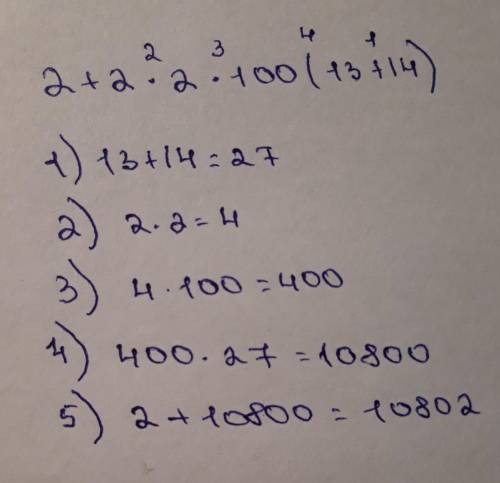 2 3 4 1
2+2·2·100(13+14)
1) 13+14=27
2) 2·2=4
3) 4·100=400
4) 400·27=10800
5) 2+10800=10802